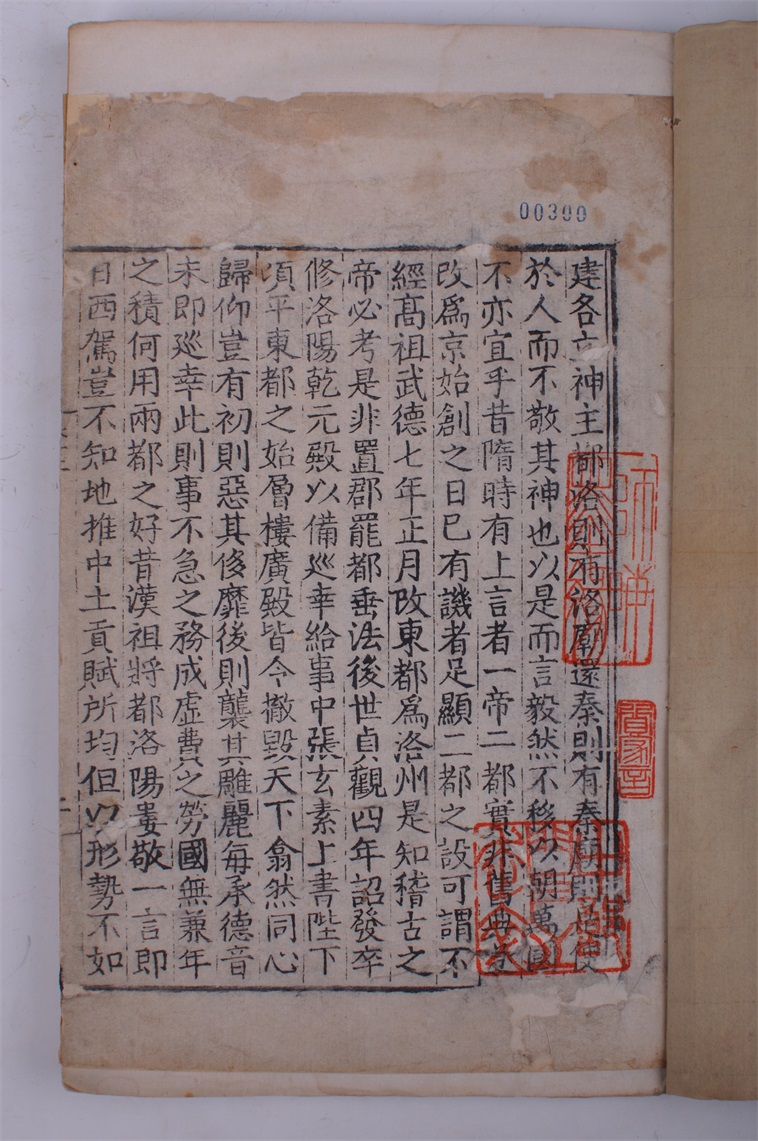 00300
建各立神主都洛則有洛廟還秦則有秦廟即是使
於人而不敬其神也以是而言毅然不移以朝萬國
不亦宜乎昔隋時有上言者一帝二都實非舊典
改爲京始創之日已有譏者足顯二都之設可謂不
經高祖武德七年正月改東都爲洛州是知稽古之
帝必考是非置郡罷都垂法後世貞觀四年詔發卒
修洛陽乾元殿以備巡幸給事中張玄素上書陛下
頃平東都之始層樓廣殿皆令撤毀天下翕然同心
歸仰豈有初則惡其侈靡後則襲其雕麗每承德音
未即巡幸此則事不急之務成虛費之勞國無兼年
之積何用兩都之好昔漢祖將都洛陽婁敬一言即
日西駕豈不知地推中土貢賦所均但以形勢不如